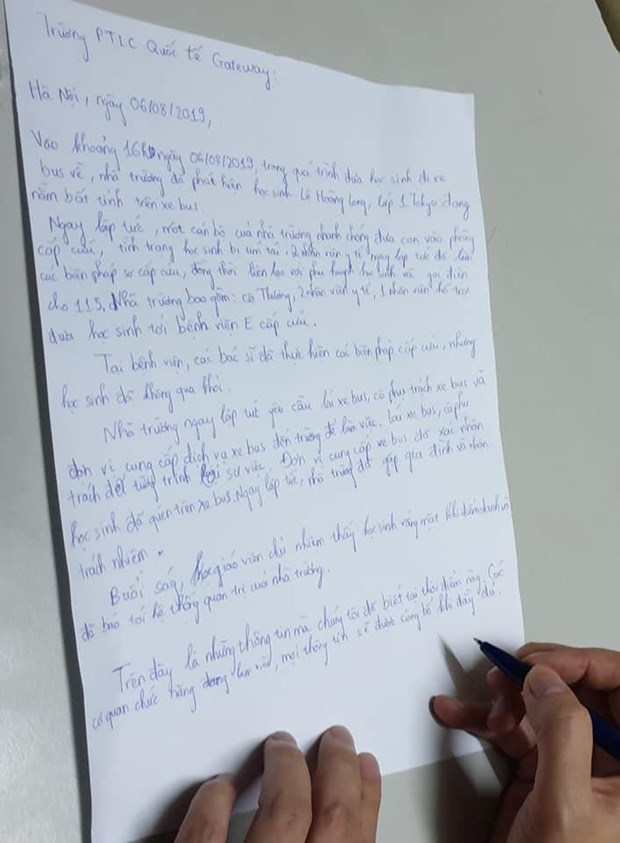 Trường PTLC Quốc tế Gateway:
Hà Nội, ngày 06/08/2019,
Vào khoảng 16h ngày 06/08/2019, trong quá trình đưa học sinh đi xe
bus về, nhà trường đã phát hiện học sinh Lê Hoàng Long, lớp 1 Tokyo đang
nằm bất tỉnh trên xe bus.
Ngay lập tức, một cán bộ của nhà trường nhanh chóng đưa con vào phòng
cấp cứu, tình trạng học sinh bị tím tái, 2 nhân viên y tế ngay lập tức đã làm
các biện pháp sơ cấp cứu, đồng thời liên lạc với phụ huynh học sinh và gọi điện
cho 115. Nhà trường bao gồm: cô Thương, 2 nhân viên y tế, 1 nhân viên hỗ trợ
đưa học sinh tới bệnh viện E cấp cứu.
Tại bệnh viện, các bác sĩ đã thực hiện các biện pháp cấp cứu, nhưng
học sinh đã không qua khỏi.
Nhà trường ngay lập tức yêu cầu lái xe bus, cô phụ trách xe bus và
đơn vị cung cấp dịch vụ xe bus đến trường để làm việc. Lái xe bus, cô phụ
trách để tường trình lại sự việc. Đơn vị cung cấp xe bus đã xác nhận
học sinh để quên trên xe bus. Ngay lập tức, nhà trường đã gặp gia đình và nhận
trách nhiệm.
Buổi sáng, giáo viên chủ nhiệm thấy học sinh vắng mặt khi điểm danh và
đã báo tới hệ thống quản trị của nhà trường.
Trên đây là những thông tin mà chúng tôi đã biết tại thời điểm này. Các
cơ quan chức năng đang làm việc, mọi thông tin sẽ được công bố khi đầy đủ.